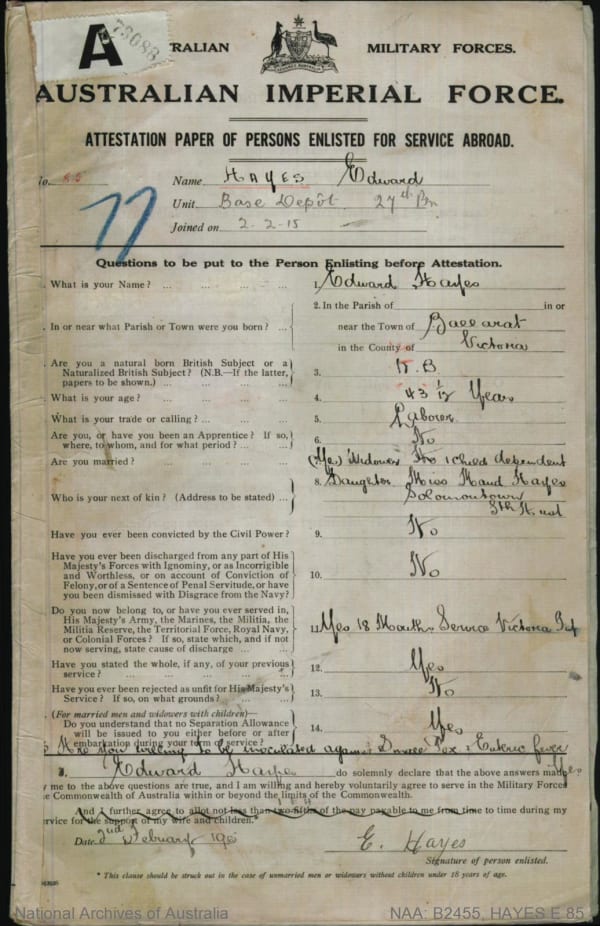 A 73088
TRALIAN MILITARY FORCES.
AUSTRALIAN IMPERIAL FORCE.
ATTESTATION PAPER OF PERSONS ENLISTED FOR SERVICE ABROAD.
No. 85 Name HAYES Edward
Unit Base Depôt 27th Bn
77 Joined on 2-2-15
Questions to be put to the Person Enlisting before Attestation.
. What is your Name? ... 1. Edward Hayes
. In or near what Parish or Town were you born? ... 2. In the Parish of in or
near the Town of Ballarat
in the County of Victoria
. Are you a natural born British Subject or a
Naturalized British Subject? (N.B.—If the latter,
papers to be shown.) ... 3. N.B.
. What is your age? ... 4. 43 1/12 Years
. What is your trade or calling? ... 5. Laborer
. Are you, or have you been an Apprentice? If so,
where, to whom, and for what period? ... 6. No
. Are you married? ... (Yes) Widower No 1 child dependent
. Who is your next of kin? (Address to be stated) ... 8. Daughter Miss Maud Hayes
Solomontown
Sth Aust
. Have you ever been convicted by the Civil Power? 9. No
. Have you ever been discharged from any part of His
Majesty's Forces with Ignominy, or as Incorrigible
and Worthless, or on account of Conviction of
Felony, or of a Sentence of Penal Servitude, or have
you been dismissed with Disgrace from the Navy? 10. No
. Do you now belong to, or have you ever served in,
His Majesty's Army, the Marines, the Militia, the
Militia Reserve, the Territorial Force, Royal Navy,
or Colonial Forces? If so, state which, and if not
now serving, state cause of discharge ... 11. Yes 18 Months Service Victoria
. Have you stated the whole, if any, of your previous
service? ... 12. Yes
. Have you ever been rejected as unfit for His Majesty's
Service? If so, on what grounds? ... 13. No
. (For married men and widowers with children)—
Do you understand that no Separation Allowance
will be issued to you either before or after
embarkation during your term of service? ... 14. Yes
5 Are you willing to be inoculated against Small Pox & Enteric fever
Yes
I, Edward Hayes do solemnly declare that the above answers made
y me to the above questions are true, and I am willing and hereby voluntarily agree to serve in the Military Forces
e Commonwealth of Australia within or beyond the limits of the Commonwealth.
And I further agree to allot not less than two-fifths of the pay payable to me from time to time during my
rvice for the support of my wife and children.*
Date 2nd February 191 E. Hayes
Signature of person enlisted.
* This clause should be struck out in the case of unmarried men or widowers without children under 18 years of age.
National Archives of Australia NAA: B2455, HAYES E 85